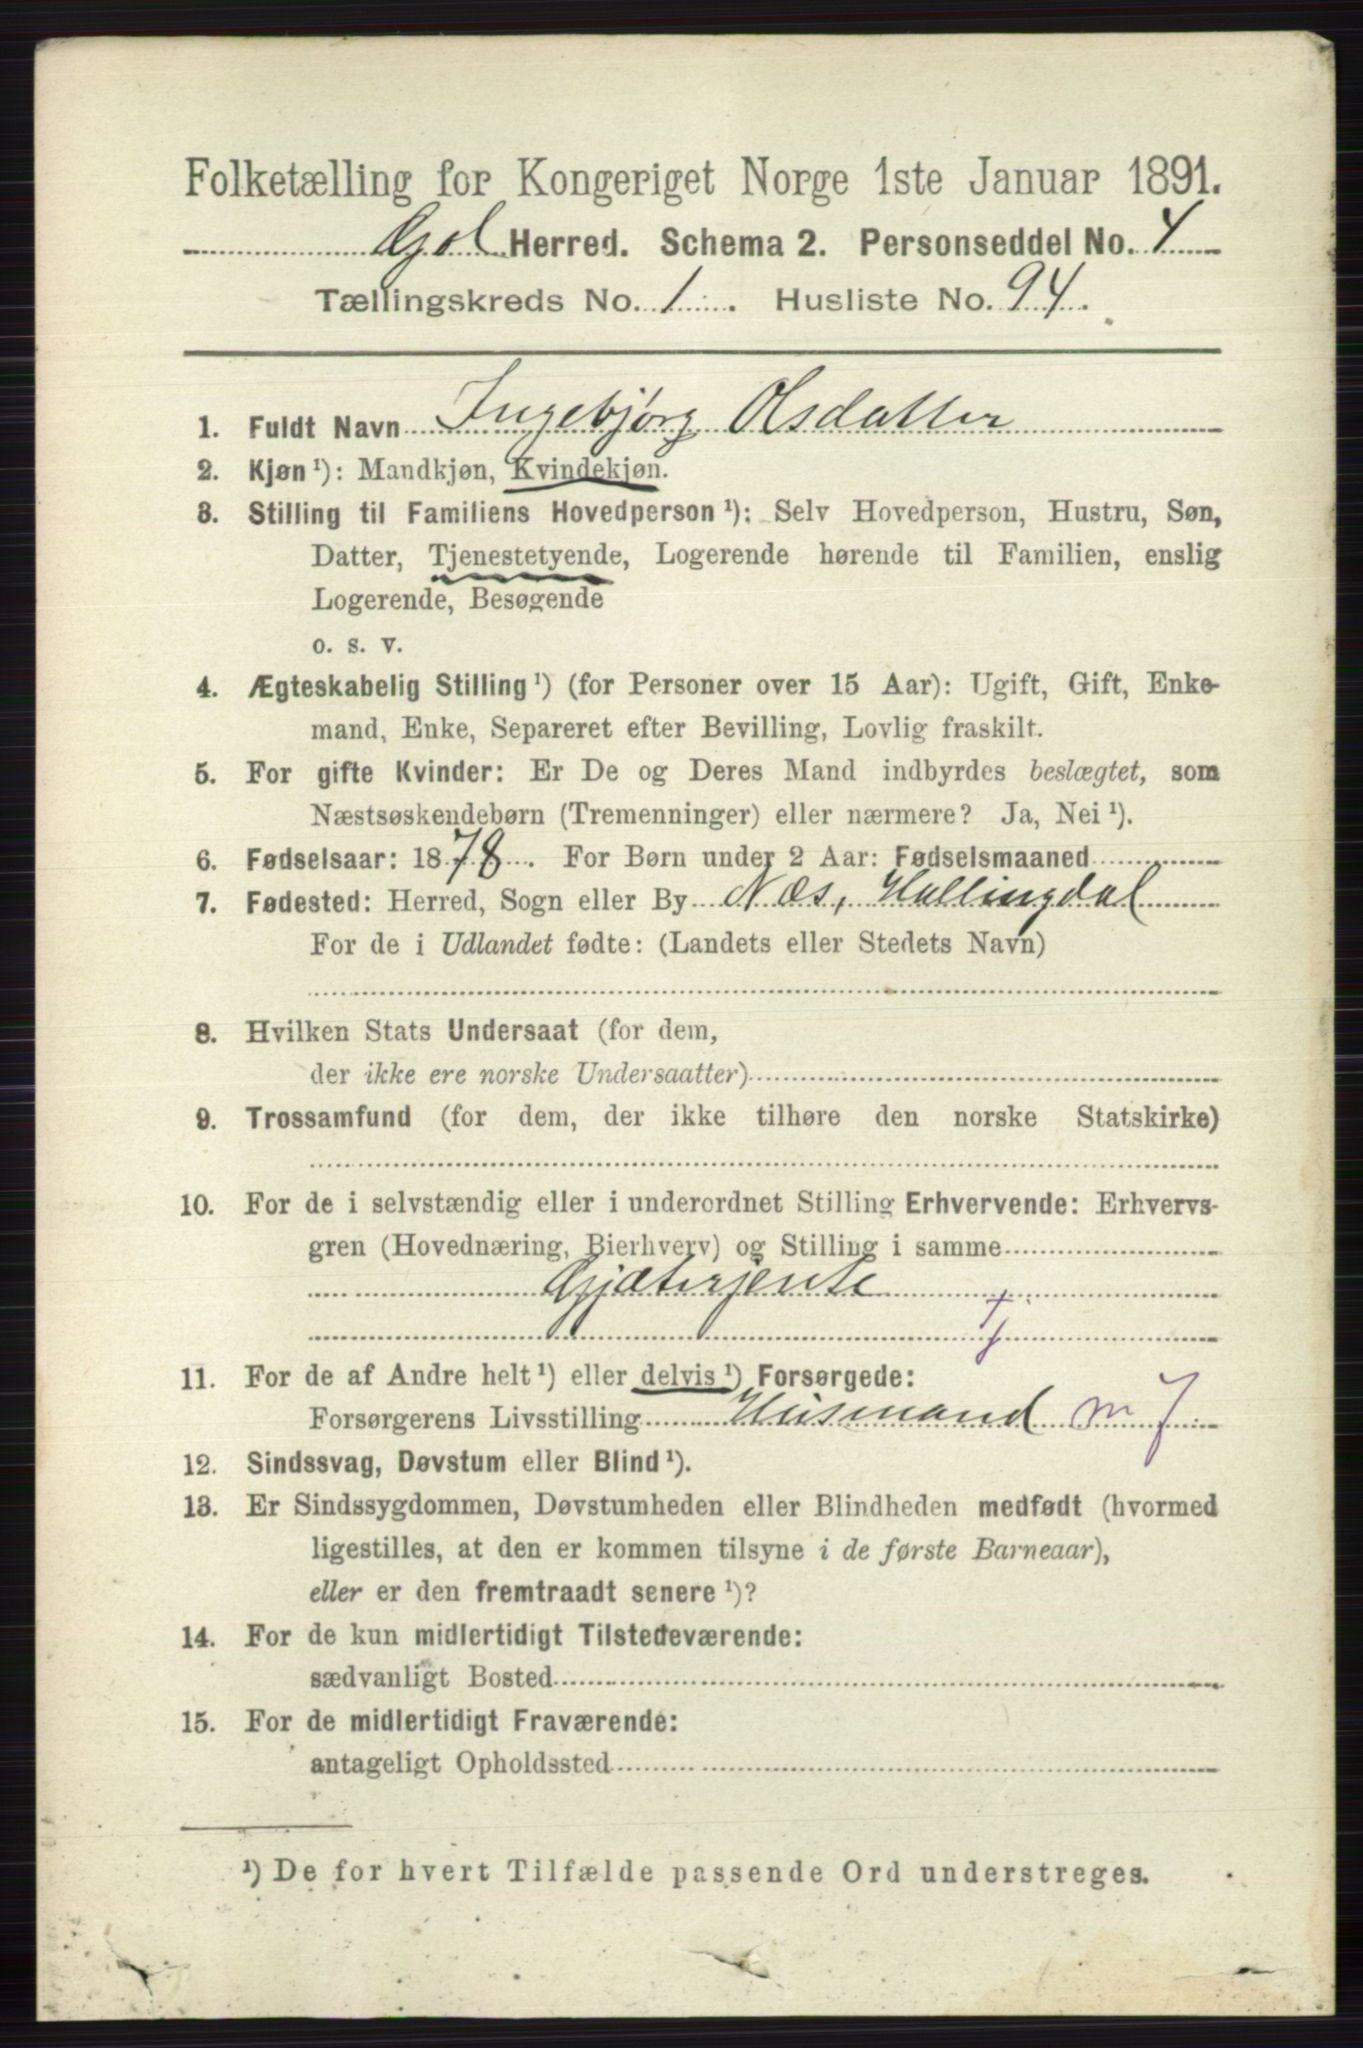 Folketælling for Kongeriget Norge 1ste Januar 1891.
Gol Herred. Schema 2. Personseddel No. 4
Tællingskreds No. 1. Husliste No. 94.
1. Fuldt Navn Ingebjørg Olsdatter
2. Kjøn ¹): Mandkjøn, Kvindekjøn.
3. Stilling til Familiens Hovedperson ¹): Selv Hovedperson, Hustru, Søn,
Datter, Tjenestetyende, Logerende hørende til Familien, enslig
Logerende, Besøgende
o. s. v.
4. Ægteskabelig Stilling ¹) (for Personer over 15 Aar): Ugift, Gift, Enke-
mand, Enke, Separeret efter Bevilling, Lovlig fraskilt.
5. For gifte Kvinder: Er De og Deres Mand indbyrdes beslægtet, som
Næstsøskendebørn (Tremenninger) eller nærmere? Ja, Nei ¹).
6. Fødselsaar: 1878. For Børn under 2 Aar: Fødselsmaaned
7. Fødested: Herred, Sogn eller By Næs, Hallingdal
For de i Udlandet fødte: (Landets eller Stedets Navn)
8. Hvilken Stats Undersaat (for dem,
der ikke ere norske Undersaatter)
9. Trossamfund (for dem, der ikke tilhøre den norske Statskirke)
10. For de i selvstændig eller i underordnet Stilling Erhvervende: Erhvervs-
gren (Hovednæring, Bierhverv) og Stilling i samme
Gjæterjente
tj
11. For de af Andre helt ¹) eller delvis ¹) Forsørgede:
Forsørgerens Livsstilling Husmand m J.
12. Sindssvag, Døvstum eller Blind ¹).
13. Er Sindssygdommen, Døvstumheden eller Blindheden medfødt (hvormed
ligestilles, at den er kommen tilsyne i de første Barneaar),
eller er den fremtraadt senere ¹)?
14. For de kun midlertidigt Tilstedeværende:
sædvanligt Bosted
15. For de midlertidigt Fraværende:
antageligt Opholdssted
¹) De for hvert Tilfælde passende Ord understreges.